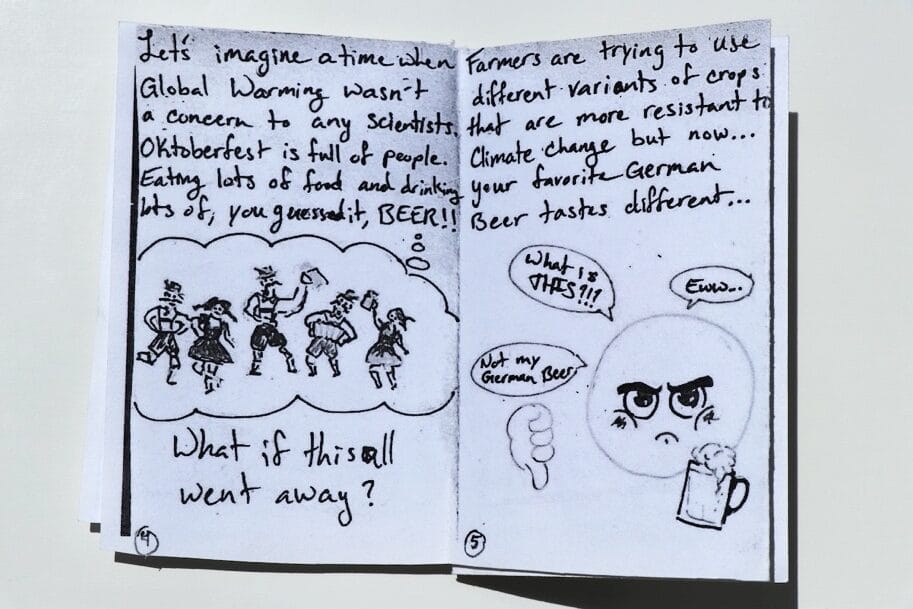 Let's imagine a time when
Global Warming wasn't
a concern to any scientists.
Oktoberfest is full of people.
Eating lots of food and drinking
lots of, you guessed it, BEER!!
What if this all
went away?
4
Farmers are trying to use
different variants of crops
that are more resistant to
Climate change but now...
your favorite German
Beer tastes different...
What is
THIS?!?
Eww...
Not my
German Beer
5